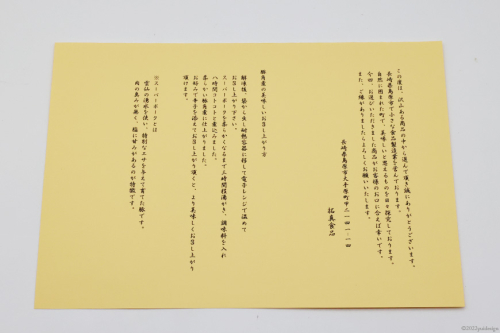 この度は、沢山ある商品の中から選んで頂き誠にありがとうございます。
長崎県島原市で小さな食品製造業を営んでおります。
自然に囲まれた町で、美味しいと思えるものを日々探究しております。
今回、お選びいただきました商品がお客様のお口に合えば幸いです。
また、ご縁がありましたらよろしくお願いいたします。
長崎県島原市大手原町甲二一四一-一四
拓真食品
豚角煮の美味しいお召し上がり方
解凍後、袋から出し耐熱容器に移して電子レンジで温めて
お召し上がり下さい。
スーパーポークを柔らかくなるまで三時間程湯がき、調味料を入れ
八時間コトコトと煮込みました。
柔らかい豚角煮に仕上がりました。
お好みで辛子を添えてお召し上がり頂くと、より美味しくお召し上がり
頂けます。
※スーパーポークとは
雲仙の湧水を使い、特別なエサを与えて育てた豚です。
肉の臭みが無く、脂に甘みがあるのが特徴です。